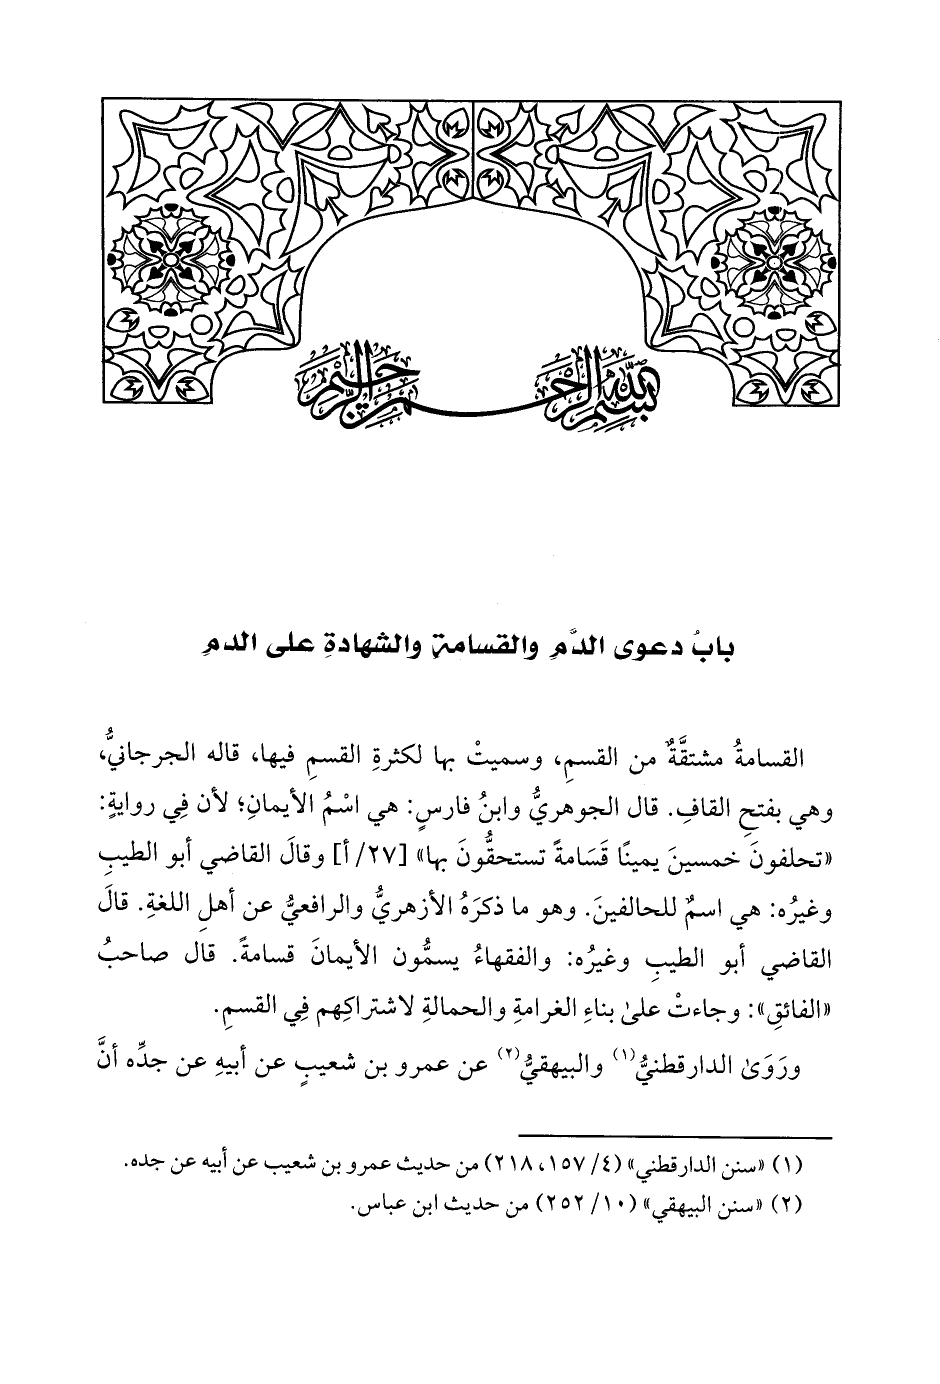 بسم الله الرحمن الرحيم
بابُ دعوى الدَّمِ والقسامةِ والشهادةِ على الدمِ
القسامةُ مشتقَّةٌ من القسمِ، وسميتْ بها لكثرةِ القسمِ فيها، قاله الجرجانيُّ،
وهي بفتحِ القافِ. قال الجوهريُّ وابنُ فارسٍ: هي اسْمُ الأيمانِ؛ لأن فِي روايةٍ:
«تحلفونَ خمسينَ يمينًا قَسَامةً تستحقُّونَ بها» [٢٧/ أ] وقالَ القاضي أبو الطيبِ
وغيرُه: هي اسمٌ للحالفينَ. وهو ما ذكرَهُ الأزهريُّ والرافعيُّ عن أهلِ اللغةِ. قالَ
القاضي أبو الطيبِ وغيرُه: والفقهاءُ يسمُّون الأيمانَ قسامةً. قال صاحبُ
«الفائقِ»: وجاءتْ علىٰ بناءِ الغرامةِ والحمالةِ لاشتراكِهم فِي القسمِ.
ورَوَىٰ الدارقطنيُّ(١) والبيهقيُّ(٢) عن عمرو بن شعيبٍ عن أبيهِ عن جدِّه أنَّ
(١) «سنن الدارقطني» (٤/ ١٥٧، ٢١٨) من حديث عمرو بن شعيب عن أبيه عن جده.
(٢) «سنن البيهقي» (١٠/ ٢٥٢) من حديث ابن عباس.